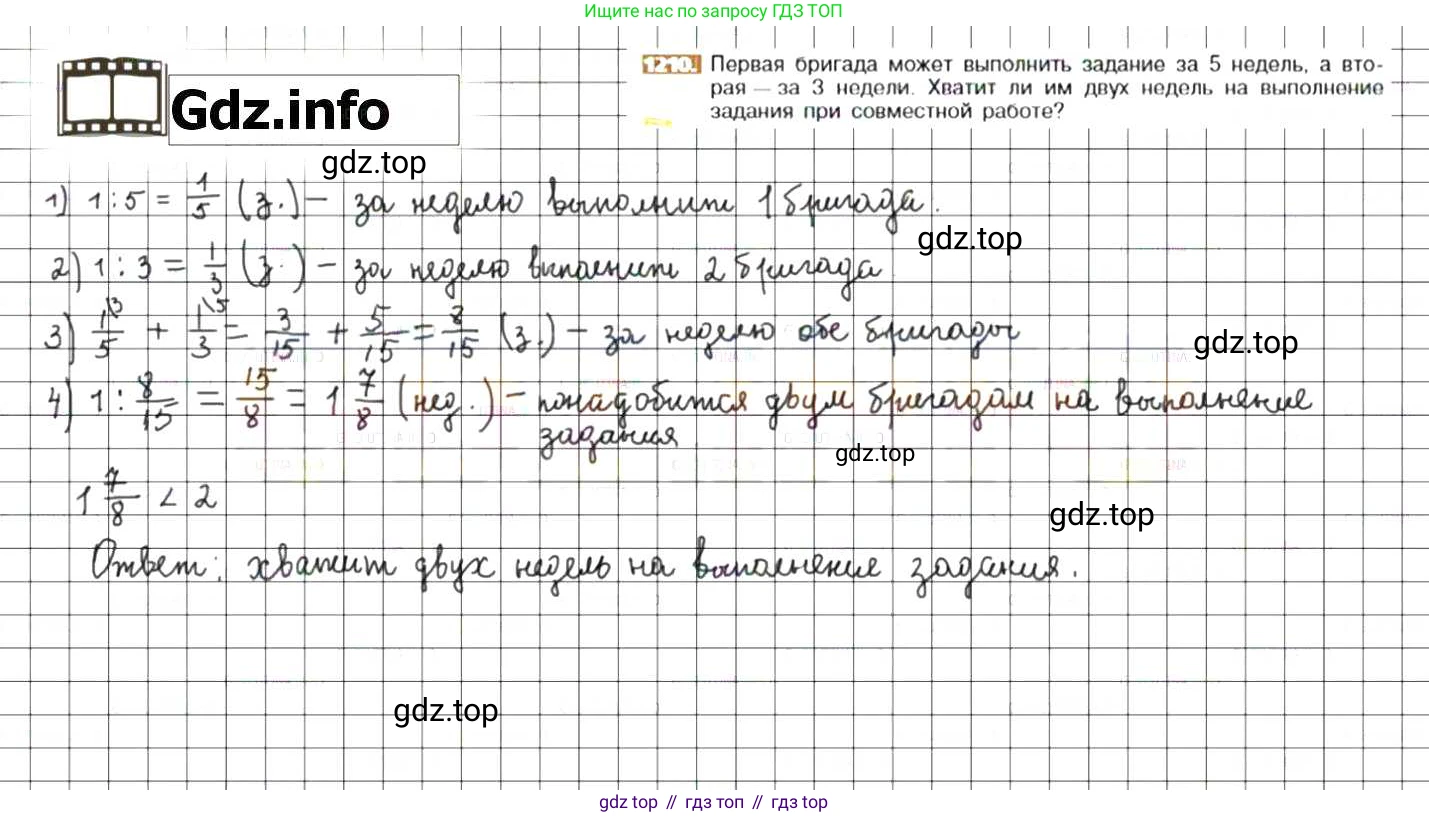 Ищите нас по запросу ГДЗ ТОП
Gdz.info
1210. Первая бригада может выполнить задание за 5 недель, а вто-
рая — за 3 недели. Хватит ли им двух недель на выполнение
задания при совместной работе?
gdz.top
1) 1 : 5 = 1/5 (з.) – за неделю выполнит 1 бригада.
gdz.top
2) 1 : 3 = 1/3 (з.) – за неделю выполнит 2 бригада
3) 1\3/5 + 1\5/3 = 3/15 + 5/15 = 8/15 (з.) – за неделю обе бригады
gdz.top
4) 1 : 8/15 = 15/8 = 1 7/8 (нед.) – понадобится двум бригадам на выполнение
задания
gdz.top
1 7/8 < 2
gdz.top
Ответ: хватит двух недель на выполнение задания.
gdz.top
gdz top // гдз топ // gdz top